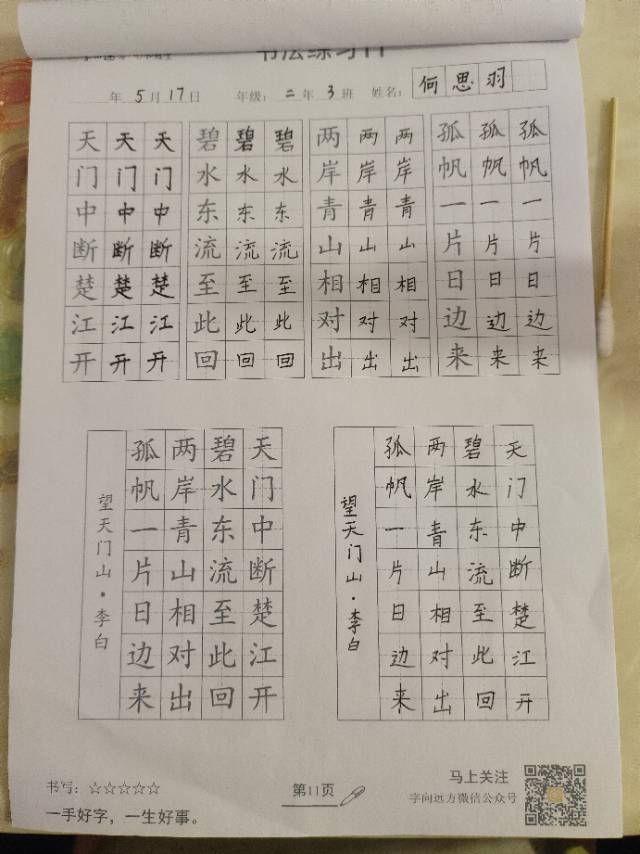 书法练习11
年 5 月 17 日 年级: 二 年 3 班 姓名: 何思羽
天 天 天 碧 碧 碧 两 两 两 孤 孤 孤
门 门 门 水 水 水 岸 岸 岸 帆 帆 帆
中 中 中 东 东 东 青 青 青 一 一 一
断 断 断 流 流 流 山 山 山 片 片 片
楚 楚 楚 至 至 至 相 相 相 日 日 日
江 江 江 此 此 此 对 对 对 边 边 边
开 开 开 回 回 回 出 出 出 来 来 来
天门中断楚江开
碧水东流至此回
两岸青山相对出
孤帆一片日边来
望天门山·李白
天门中断楚江开
碧水东流至此回
两岸青山相对出
孤帆一片日边来
望天门山·李白
书写: ☆☆☆☆☆
一手好字，一生好事。
第11页
马上关注
字向远方微信公众号